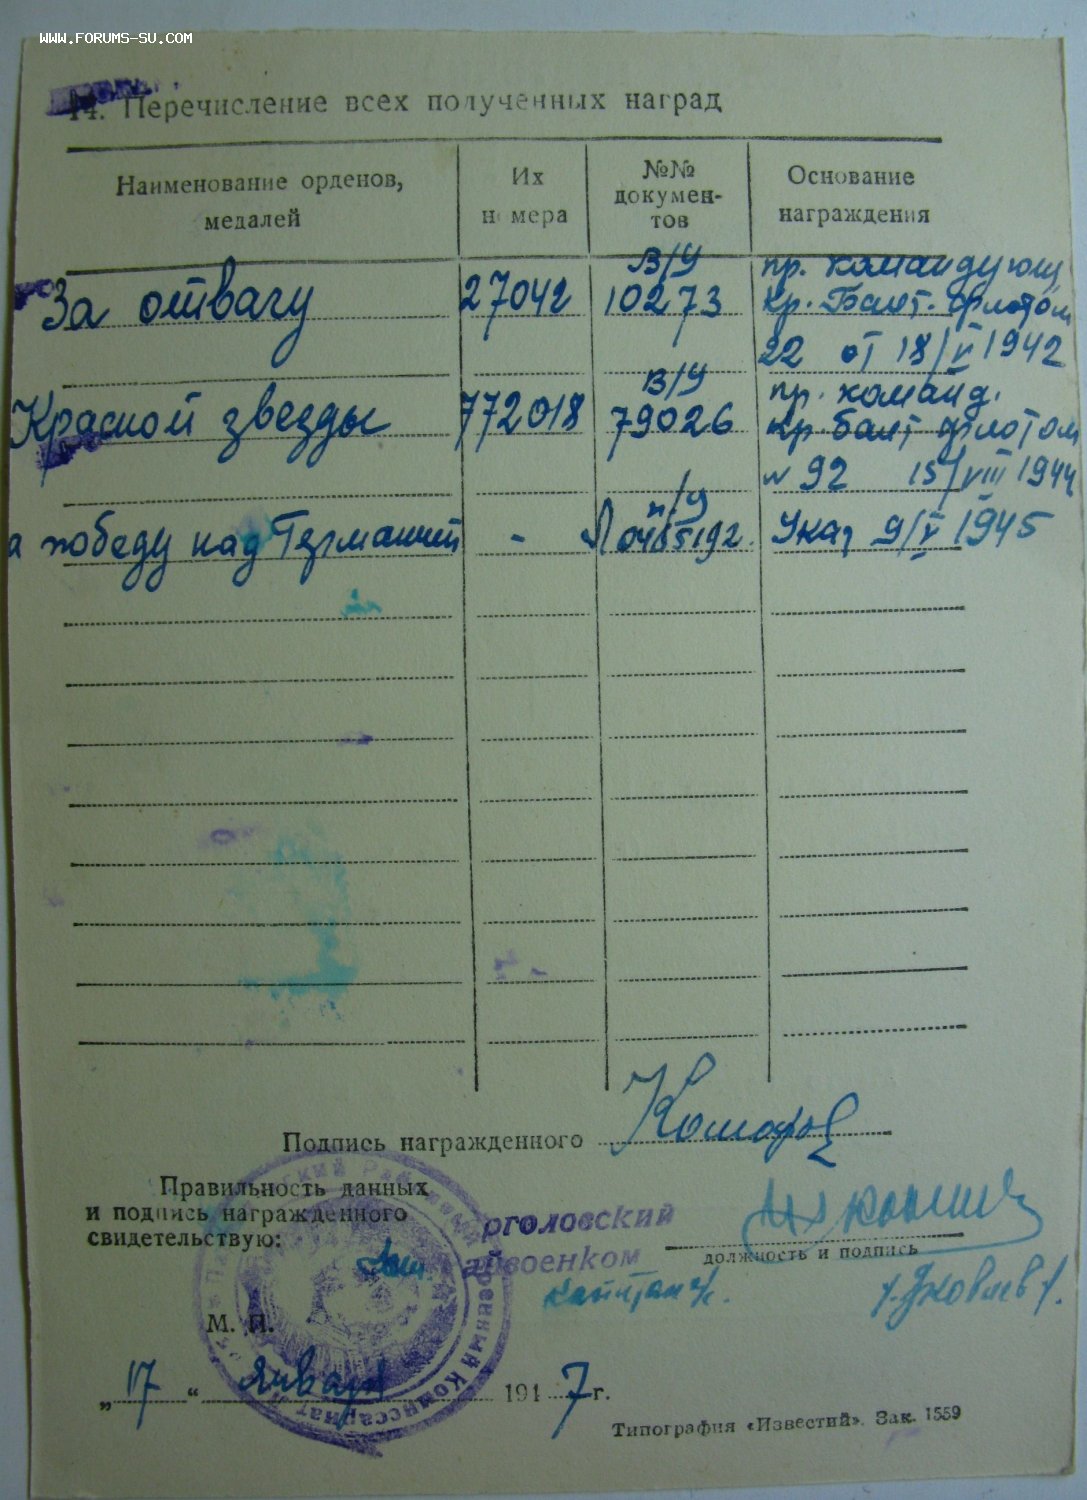 WWW.FORUMS-SU.COM
14. Перечисление всех полученных наград
Наименование орденов, медалей
Их номера
№№ документов
Основание награждения
За отвагу 27042 В/У 10273 пр. командующ Кр. Балт. флотом 22 от 18/V 1942
Красной звезды 772018 В/У 79026 пр. команд. Кр. балт флотом № 92 15/VIII 1944
а победу над Германией - 0465192 Указ 9/V 1945
Подпись награжденного Комаров
Правильность данных
и подпись награжденного
свидетельствую:
рголовский
айвоенком
капитан
должность и подпись
/Яковлев/.
М. П.
Районный Военный Комиссариат
„17“ января 1947 г.
Типография «Известий». Зак. 1559